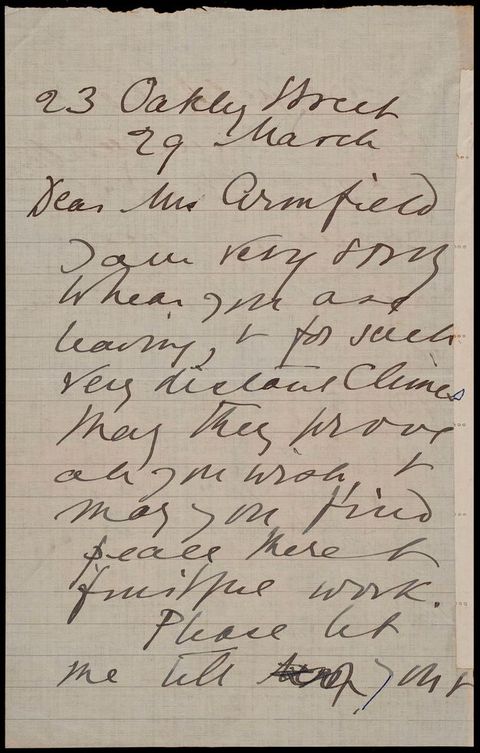 23 Oakley Street
29 March
Dear Mrs Armfield
I am very sorry
to hear you are
leaving, & for such
very distant Climes
May they prove
all you wish, &
may you find
peace there &
fruitful work.
Please let
me tell you &